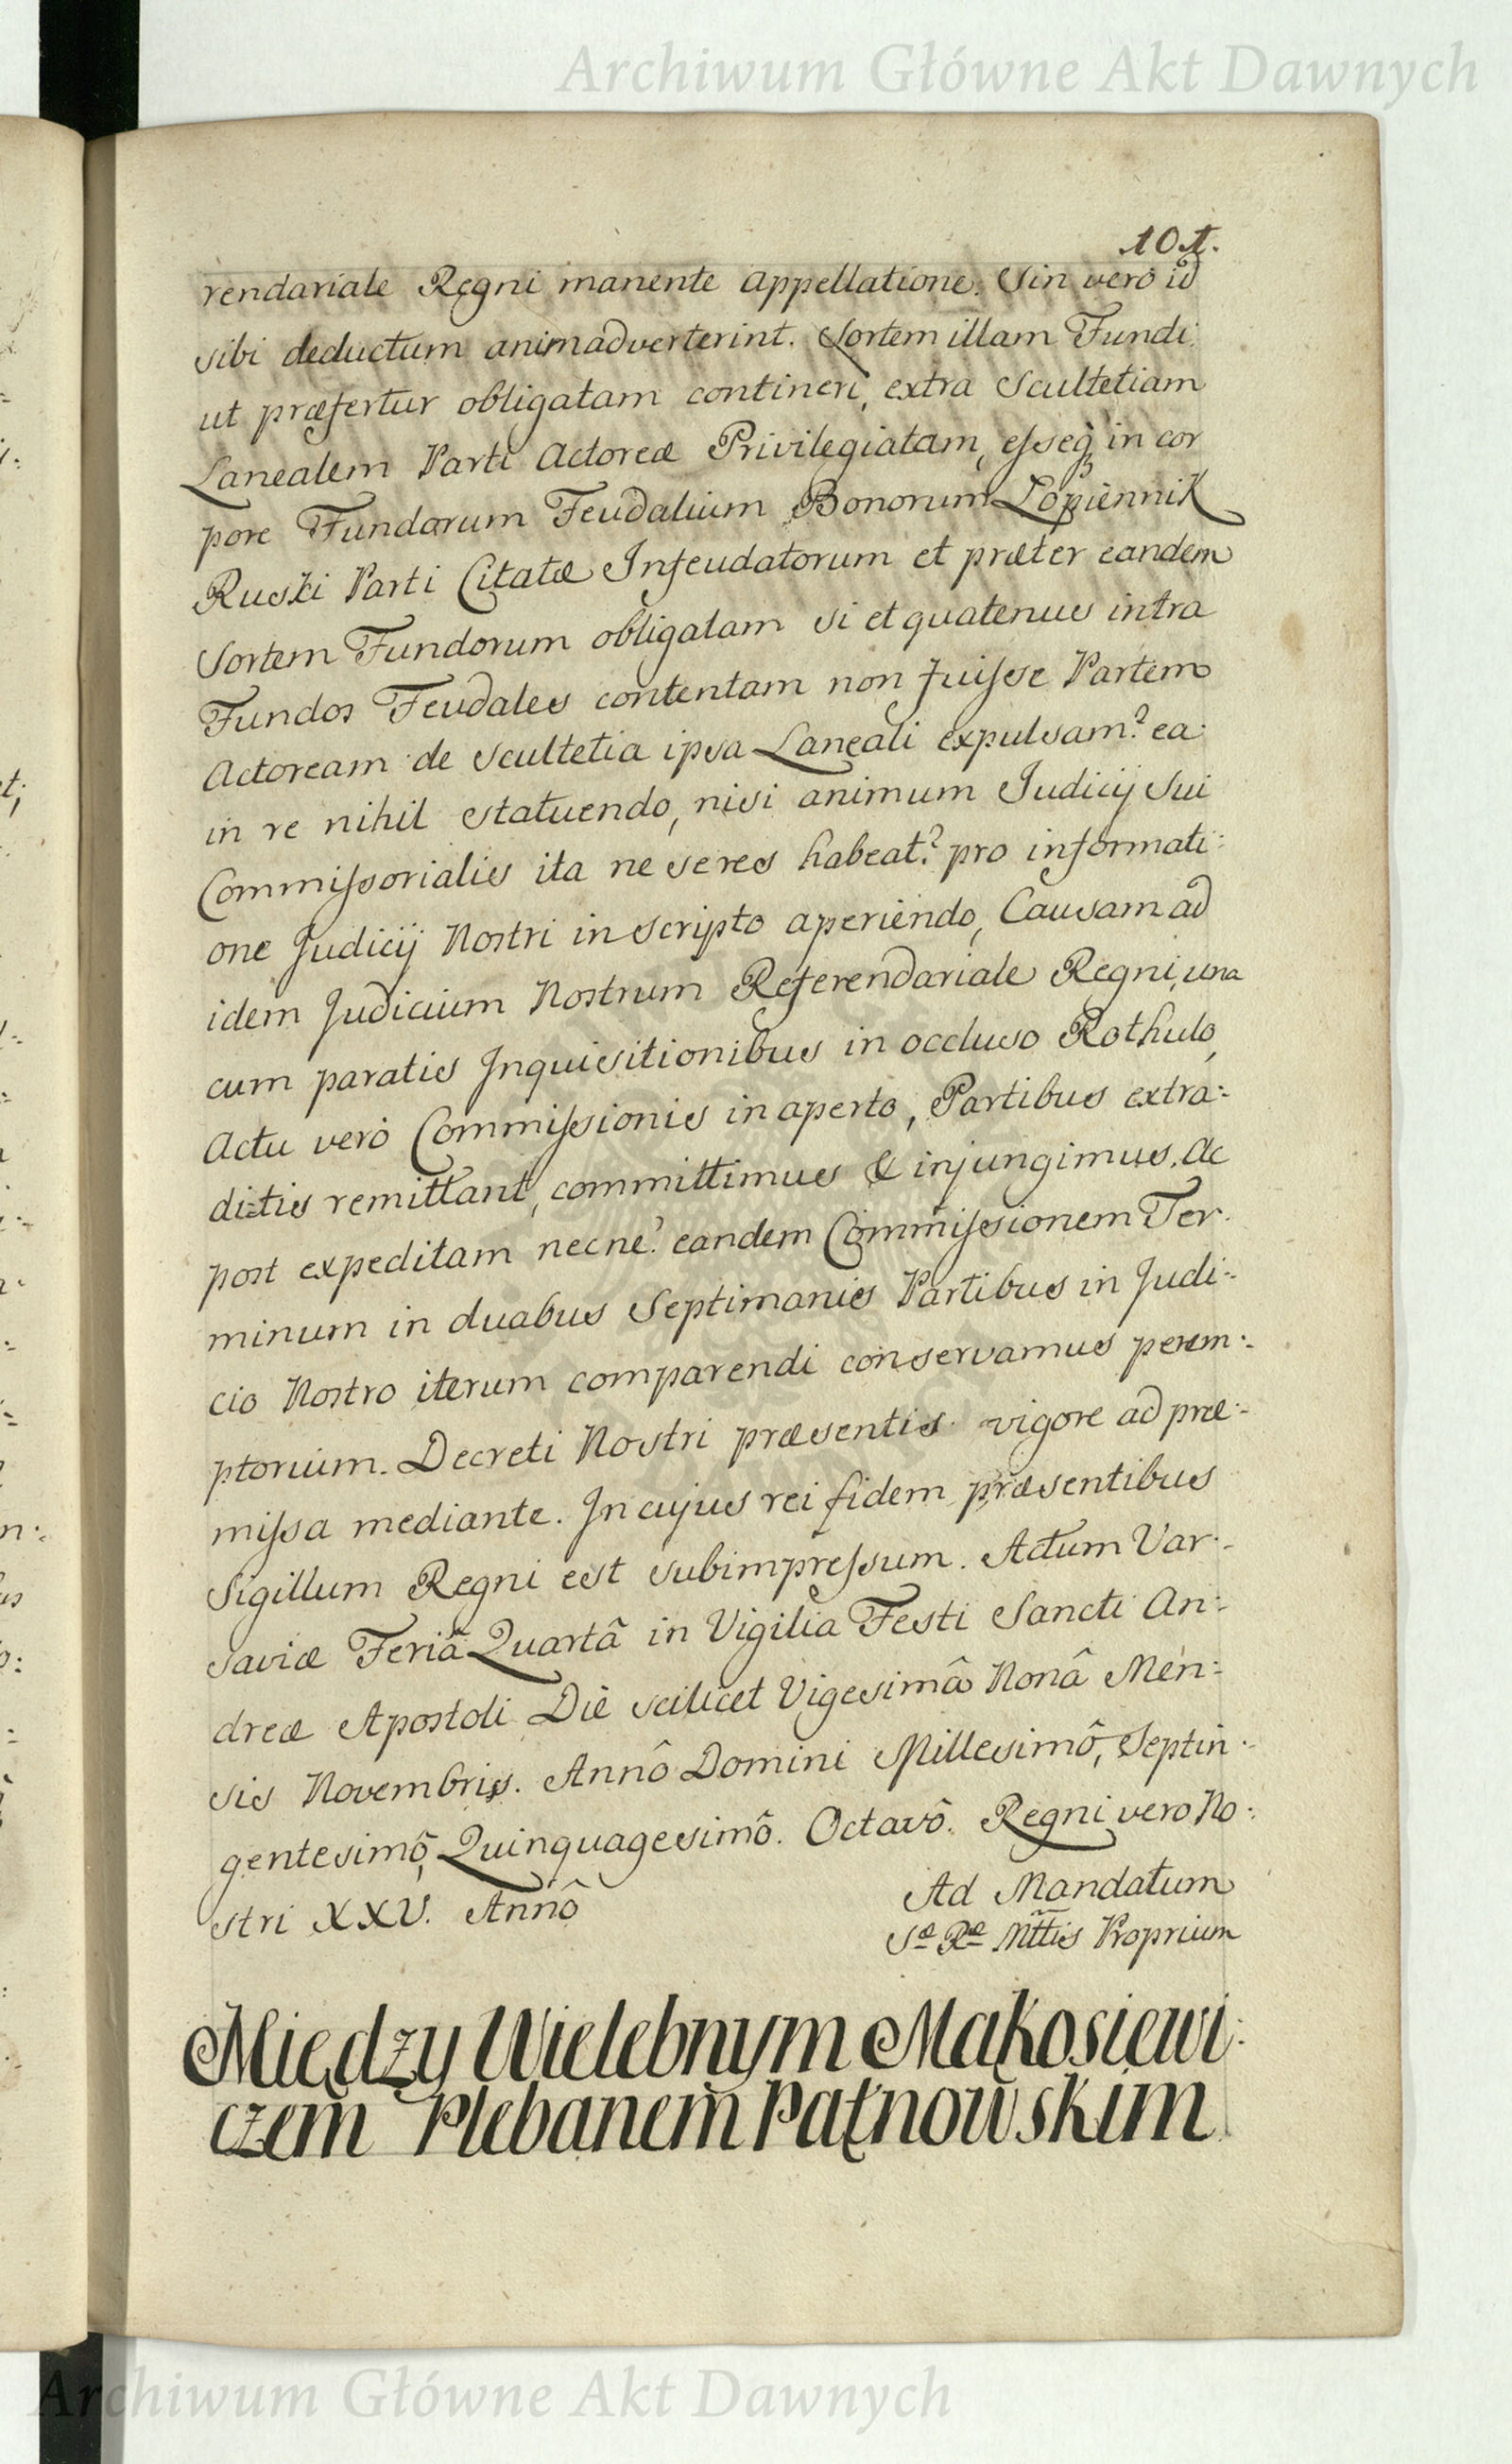 Archiwum Główne Akt Dawnych
101.
rendariale Regni manente Appellatione. Sin verò id
sibi deductum animadverterint. Sortem illam Fundi
ut præfertur obligatam contineri, extra Scultetiam
Lanealem Parti Actoreæ Privilegiatam, esseq in cor
pore Fundorum Feudalium Bonorum Łopiennik
Ruski Parti Citatæ Infeudatorum et præter eandem
Sortem Fundorum obligatam si et quatenus intra
Fundos Feudales contentam non fuisse Partem
Actoream de Scultetia ipsa Laneali expulsam? ea
in re nihil statuendo, nisi animum Judicij Sui
Commissorialis ita ne se res habeat? pro informati:
one Judicij Nostri in scripto aperiendo, Causam ad
idem Judicium Nostrum Referendariale Regni, una
cum paratis Inquisitionibus in occluso Rothulo,
Actu verò Commissionis in aperto, Partibus extra:
ditis remittant, committimus & injungimus. Ac
post expeditam necne? eandem Commissionem Ter:
minum in duabus Septimanis Partibus in Judi:
cio Nostro iterum comparendi conservamus perem:
ptorium. Decreti Nostri præsentis vigore ad præ:
missa mediante. In cujus rei fidem præsentibus
Sigillum Regni est subimpressum. Actum Var:
saviæ Feriâ Quartâ in Vigilia Festi Sancti An:
dreæ Apostoli Die scilicet Vigesimâ Nonâ Men:
sis Novembris. Annô Domini Millesimô, Septin:
gentesimô, Quinquagesimô. Octavô. Regni vero No:
stri XXV. Annô
Ad Mandatum
Sæ Ræ Mttis Proprium
Między Wielebnym Makosiewi:
czem Plebanem Pątnowskim
Archiwum Główne Akt Dawnych